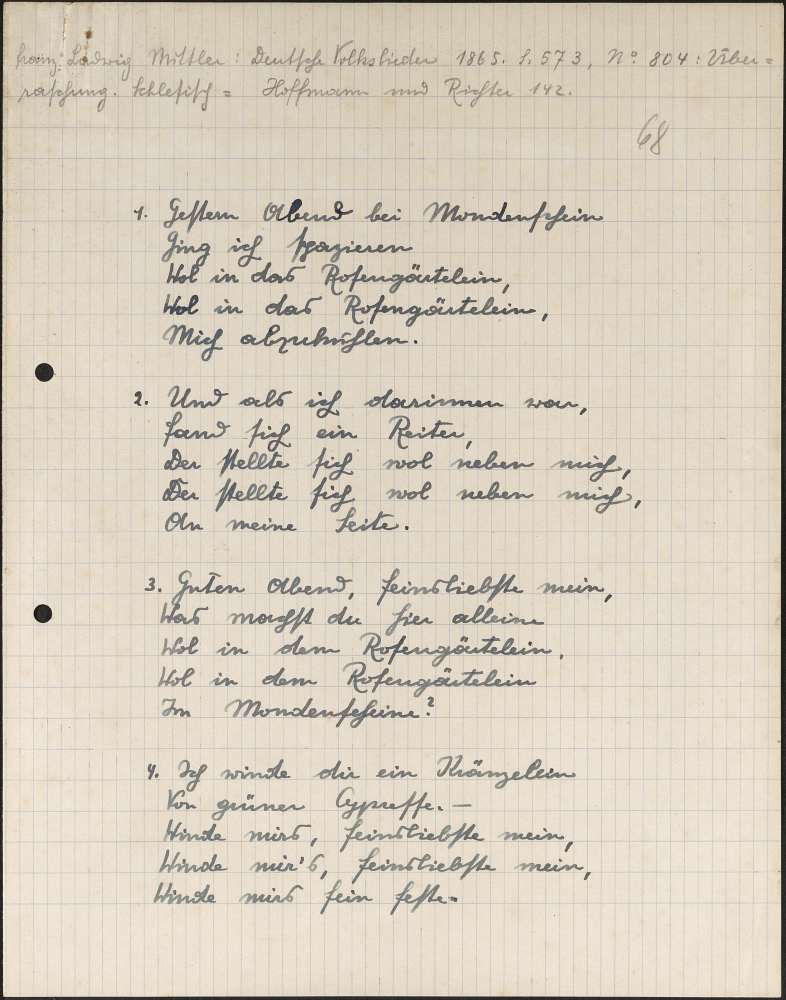 Franz Ludwig Mittler: Deutsche Volkslieder 1865. S. 573, No. 804: Über=
raschung. Schlesisch = Hoffmann und Richter 142.
68
1. Gestern Abend bei Mondenschein
Ging ich spazieren
Wol in das Rosengärtelein,
Wol in das Rosengärtelein,
Mich abzukühlen.
2. Und als ich darinnen war,
Fand sich ein Reiter,
Der stellte sich wol neben mich,
Der stellte sich wol neben mich,
An meine Seite.
3. Guten Abend, feinsliebste mein,
Was machst du hier alleine
Wol in dem Rosengärtelein,
Wol in dem Rosengärtelein
Im Mondenscheine?
4. Ich winde dir ein Kränzelein
Von grüner Cypresse. —
Winde mirs, feinsliebste mein,
Winde mir's, feinsliebste mein,
Winde mirs fein feste.